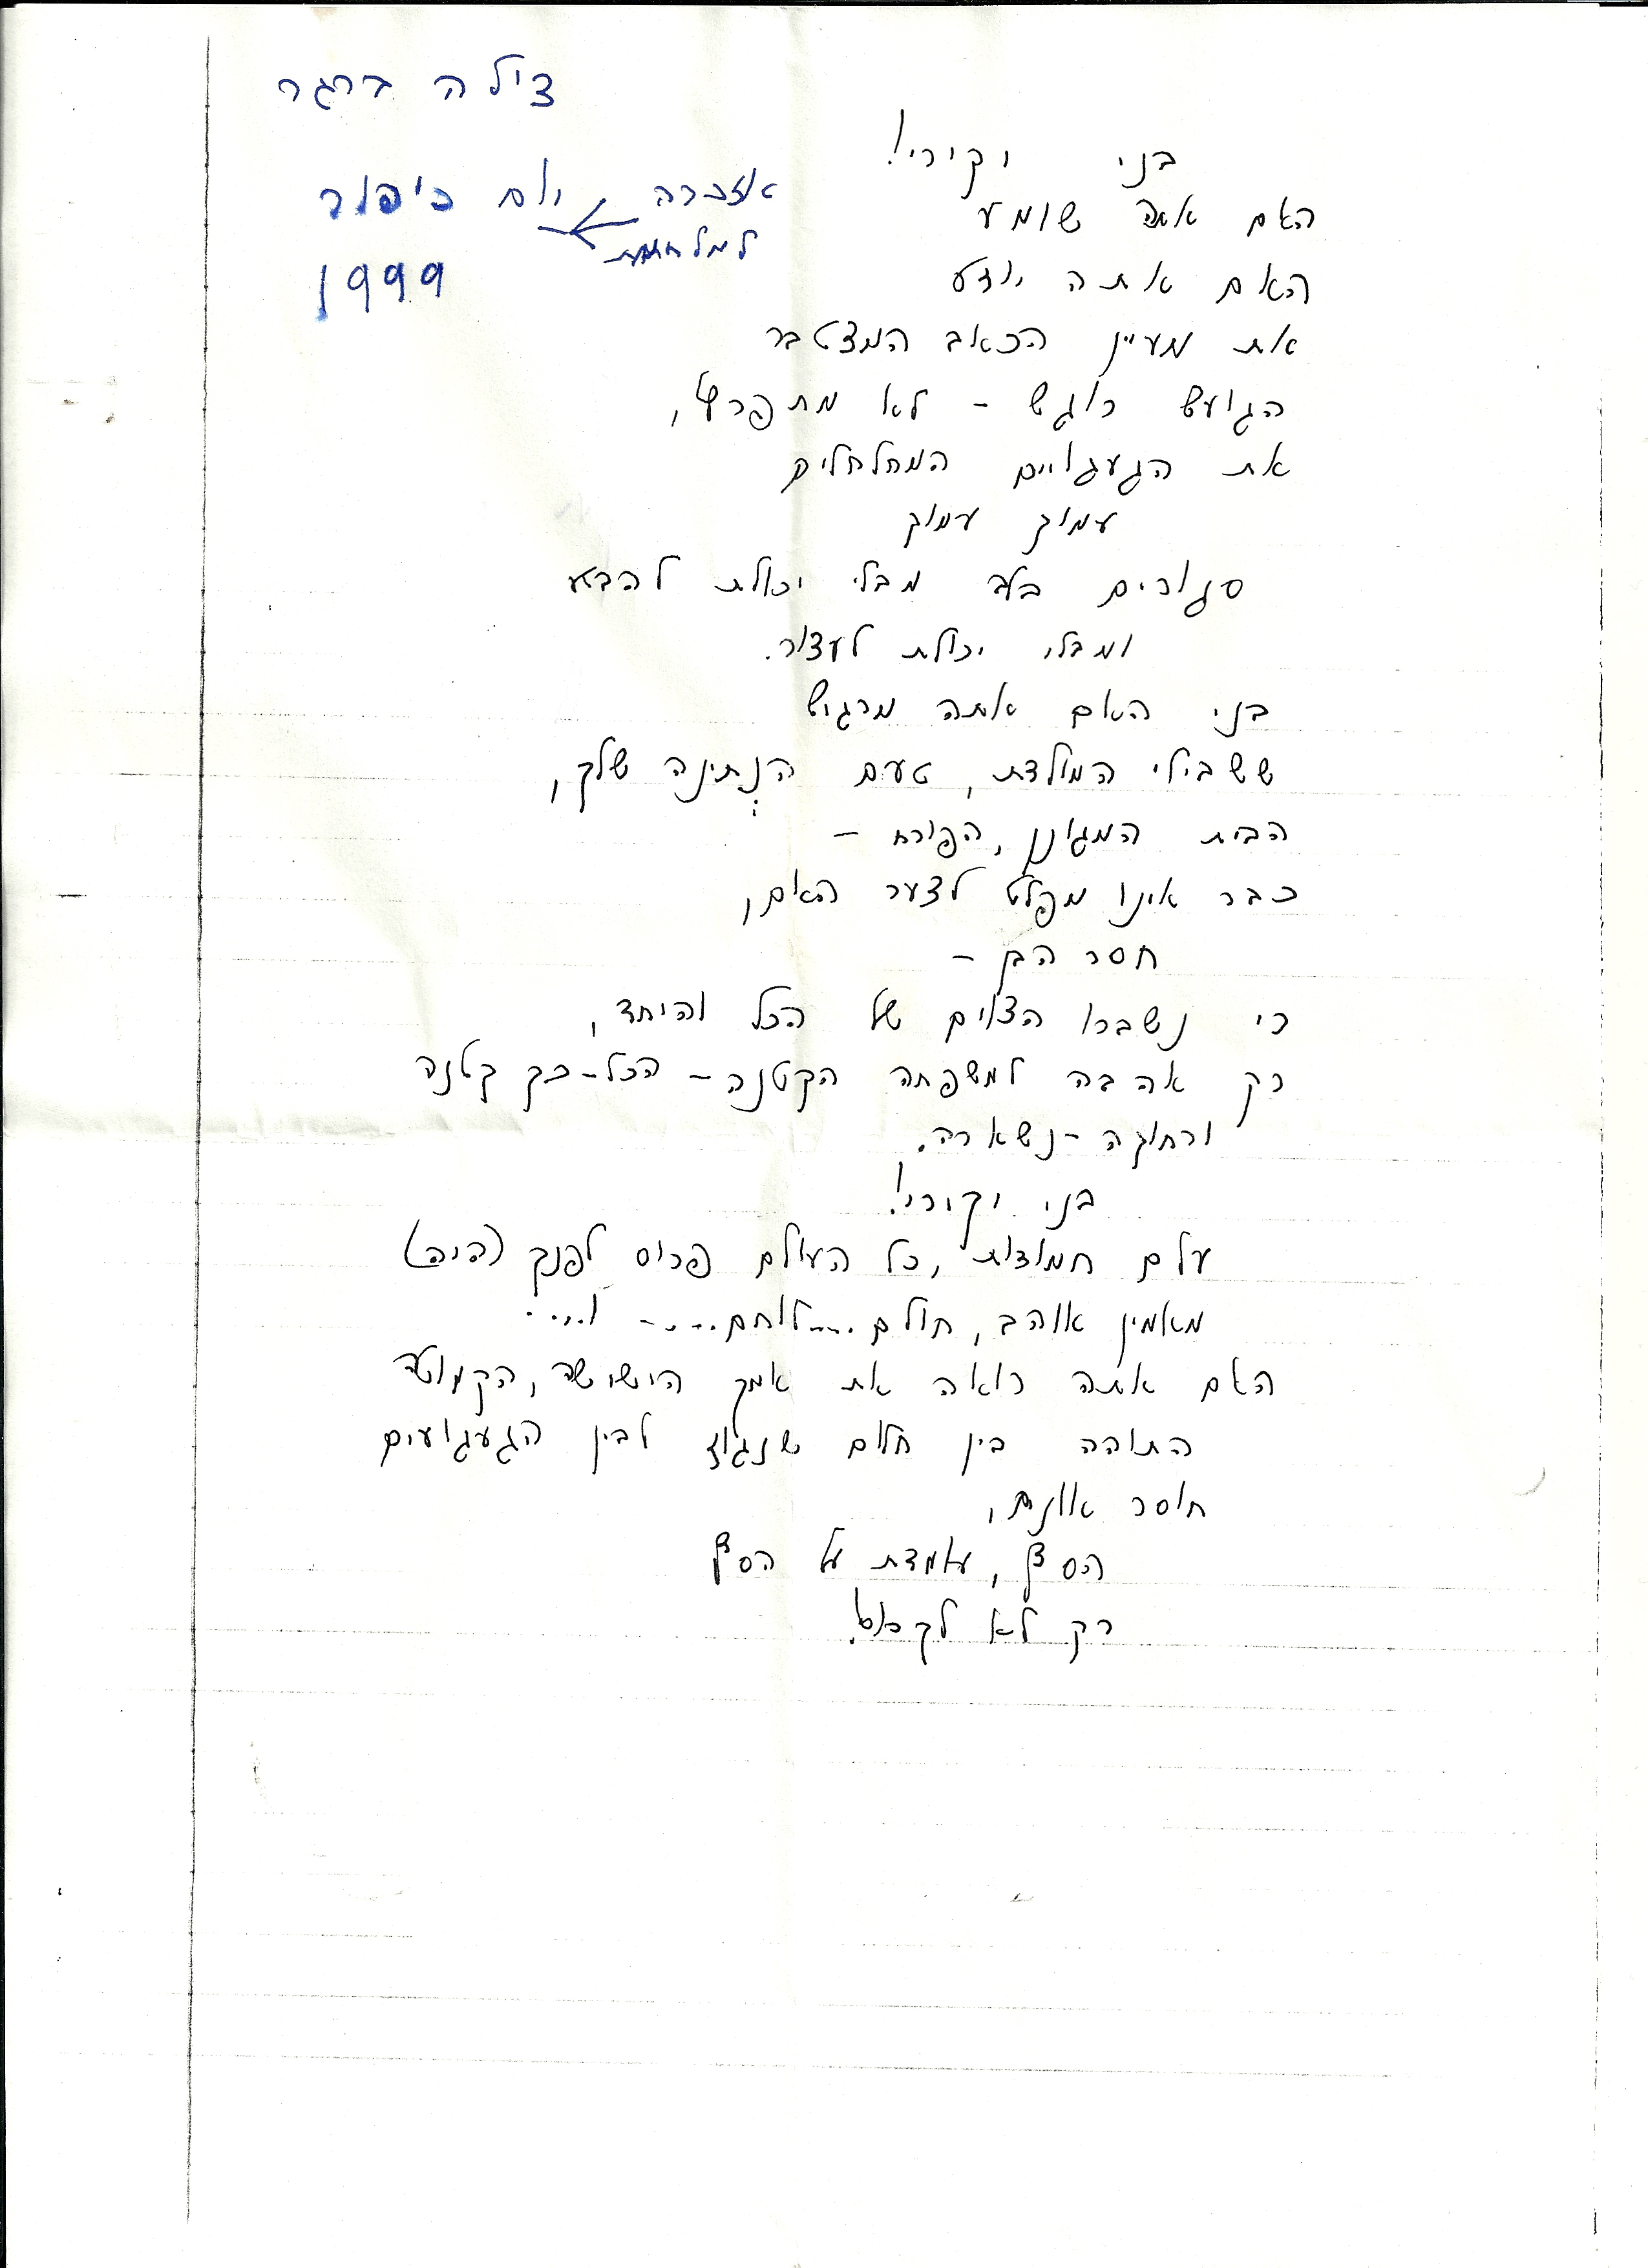 צילה ברגר
אזכרה יום כיפור
למלחמת
1999
בני יקירי!
האם אתה שומע
האם אתה יודע
את מעיין הכאב המצטבר
הגועש רוגש - לא מתפרץ,
את הגעגויים המחלחלים
עמוק עמוק
סגורים בלב מבלי יכולת להביע
ומבלי יכולת לעצור.
בני האם אתה מרגיש
ששבילי המולדת, טעם הנְתינה שלך,
הבית המגונן, הפורח -
כבר אינו מפלט לצער האם,
חסר הבן -
כי נשברו הצלים של הכל והיחד,
רק אהבה למשפחה הקטנה - הכל-כך קטנה
ורחוקה - נשארה.
בני יקירי!
עלם חמודות, כל העולם פרוס לפניך (היה)
מאמין אוהב, חולם....לוחם..... ו....
האם אתה רואה את אמך הישישה, הקמוטה
התוהה בין חלום שנגוז לבין הגעגועים
חוסר אונים,
הסף, עומדת על הסף
רק לא לקרוס!